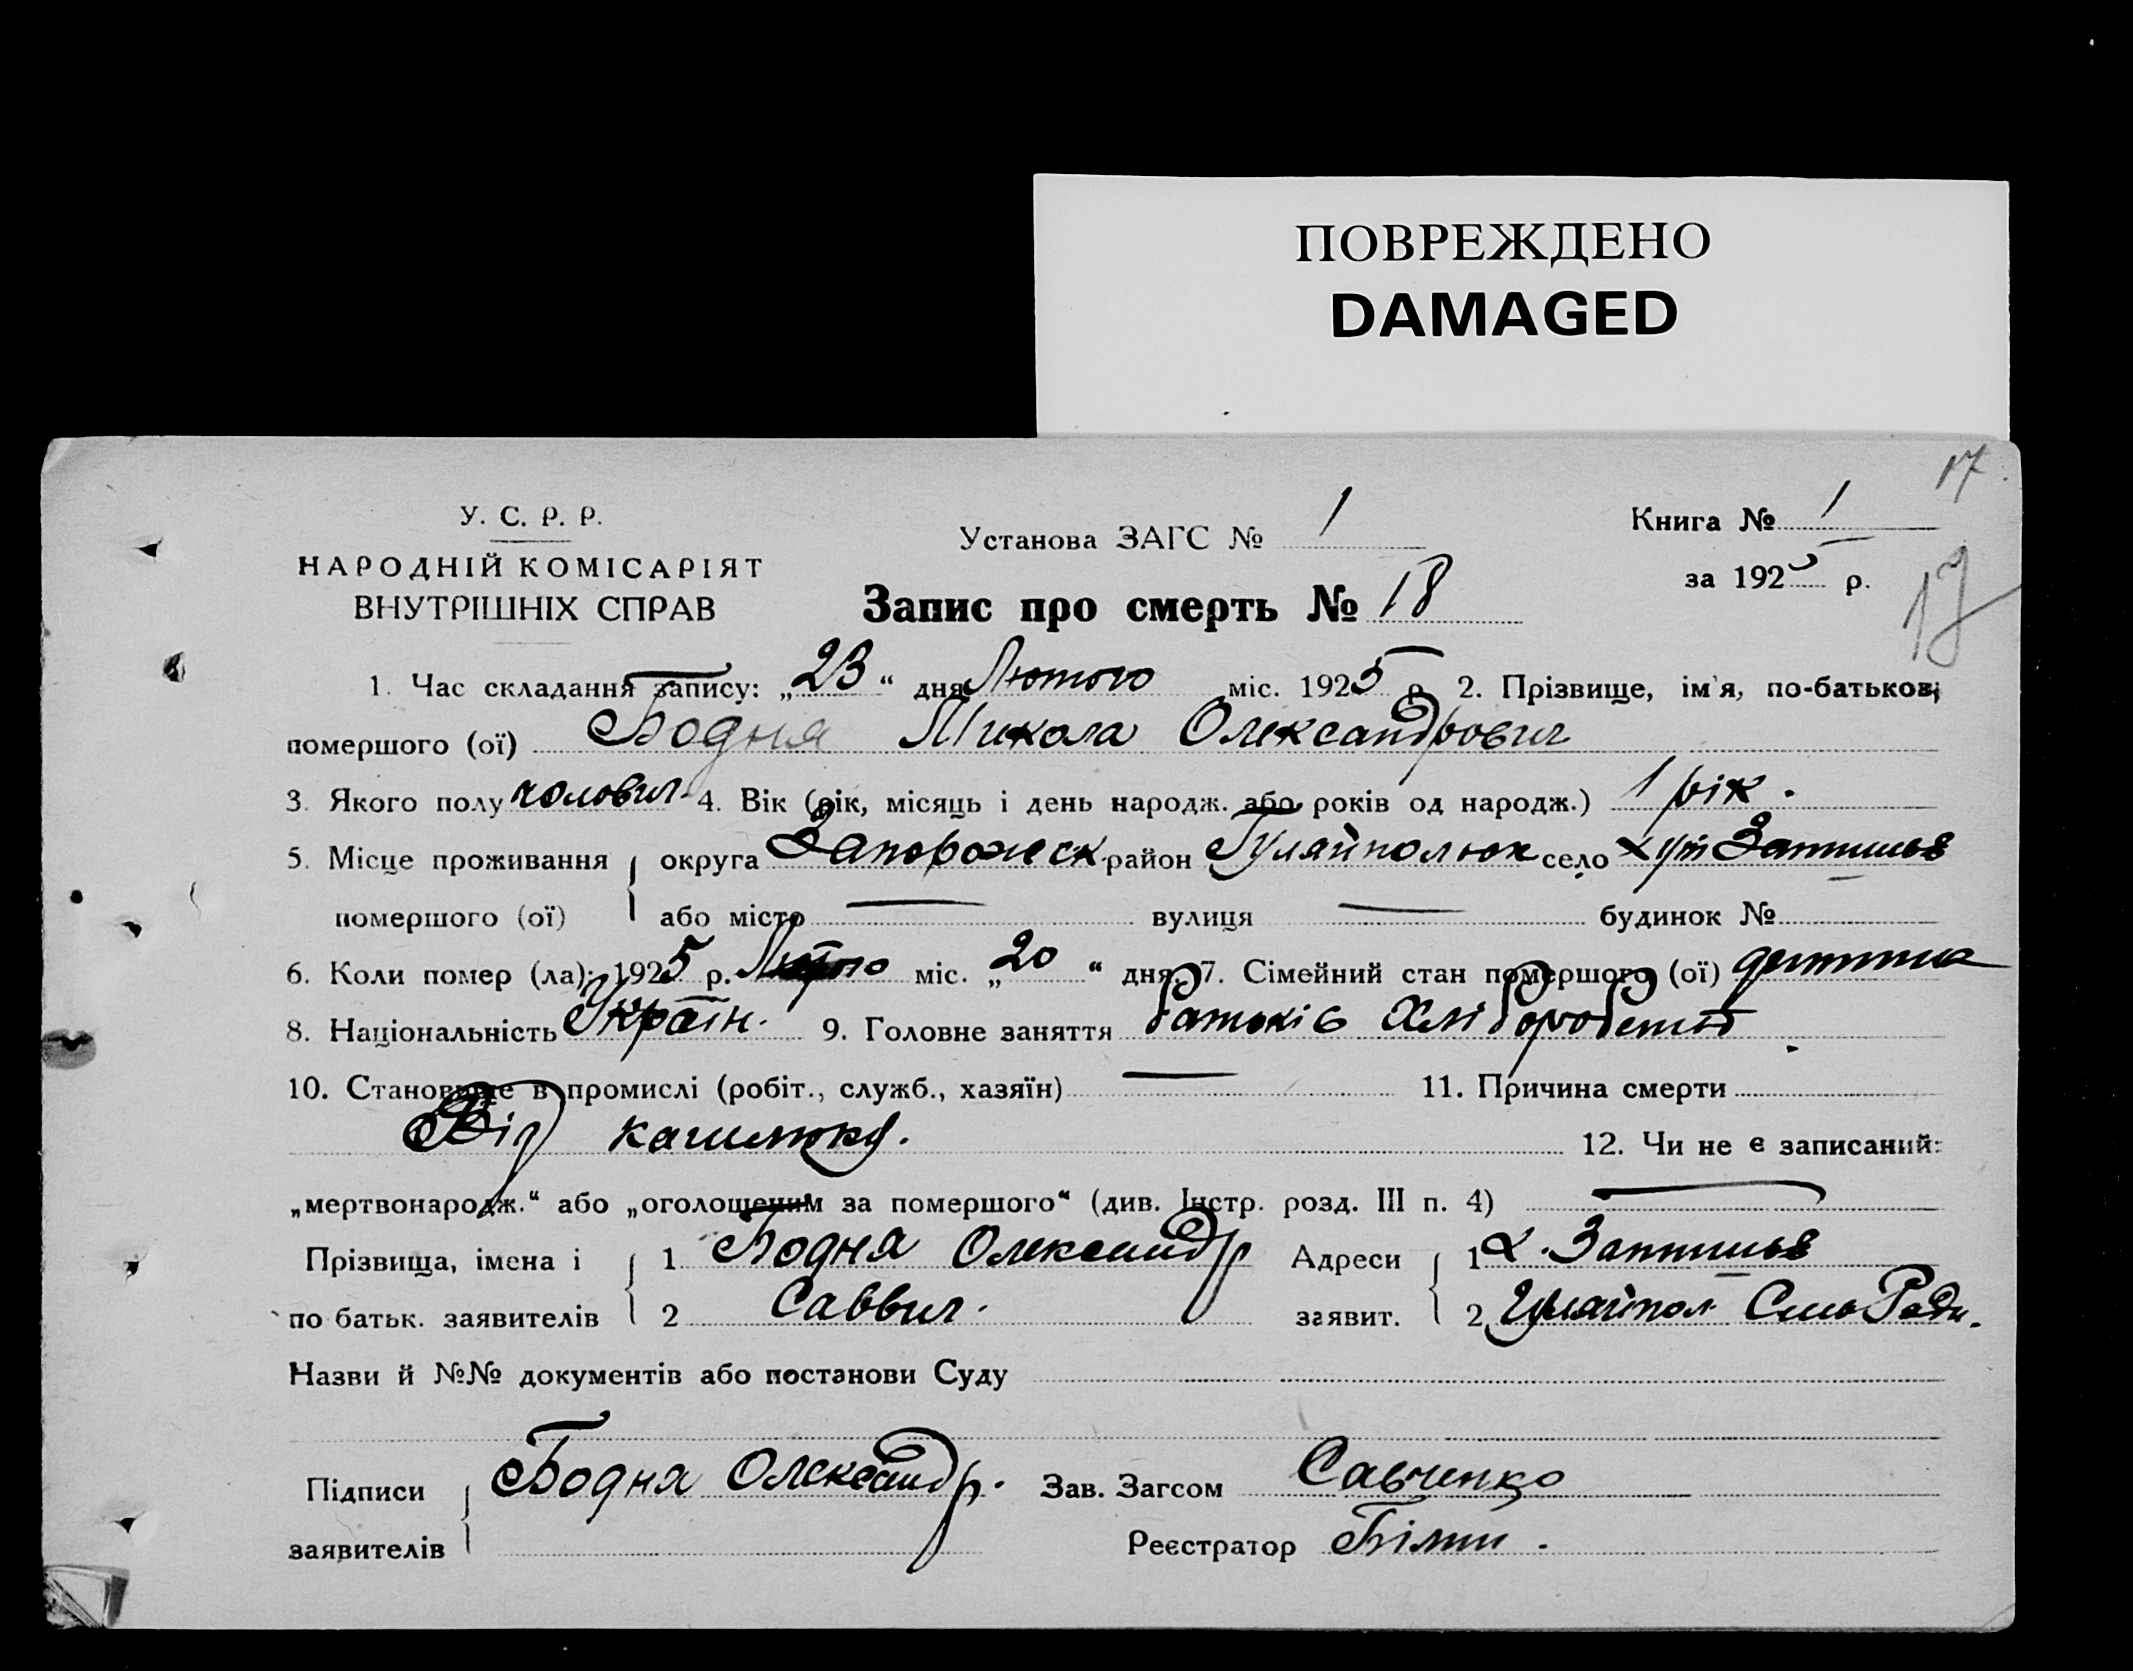 ПОВРЕЖДЕНО
DAMAGED
17
У. С. Р. Р.
НАРОДНІЙ КОМІСАРІЯТ
ВНУТРІШНІХ СПРАВ
Установа ЗАГС № 1
Книга № 1
за 1925 р.
17
Запис про смерть № 18
1. Час складання запису: „23“ дня Лютого міс. 1925 р. 2. Прізвище, ім'я, по-батькові
помершого (ої) Бодня Микола Олександрович
3. Якого полу чолович. 4. Вік (рік, місяць і день народж. або років од народж.) 1 рік.
5. Місце проживання округа Запорожеск район Гуляйполюк село хут Затишьє
помершого (ої) або місто — вулиця — будинок №
6. Коли помер (ла): 1925 р. Лютого міс. „20“ дня 7. Сімейний стан помершого (ої) дитина
8. Національність Україн. 9. Головне заняття батьків Хліборобство
10. Становище в промислі (робіт., служб., хазяїн) — 11. Причина смерти
Від кашлюку.
12. Чи не є записаний:
„мертвонародж.“ або „оголошеним за помершого“ (див. Інстр. розд. III п. 4) —
Прізвища, імена і 1 Бодня Олександр Адреси 1 х. Затишьє
по батьк. заявителів 2 Саввич. заявит. 2 Гуляйпол. Радн.
Назви й №№ документів або постанови Суду
Підписи Бодня Олександр. Зав. Загсом Савченко
заявителів Реєстратор